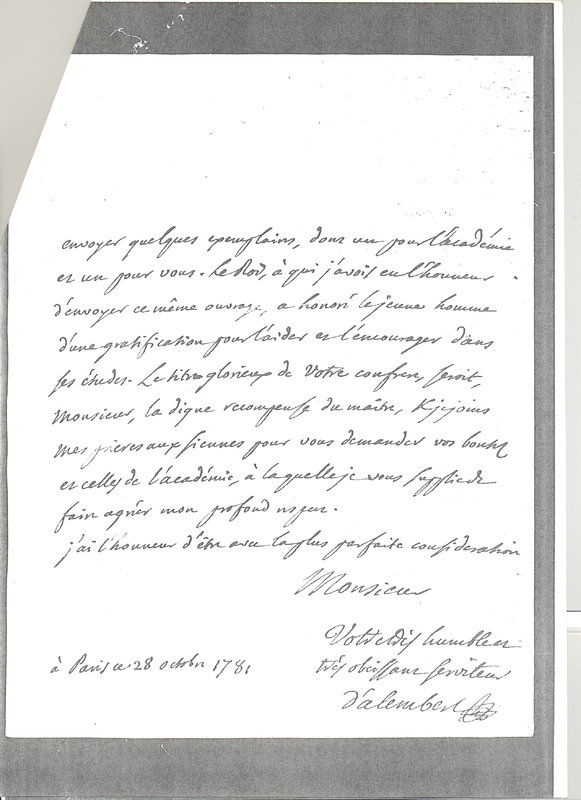 envoyer quelques exemplaires, dont un pour l'académie
et un pour vous. Le Roi, à qui j'avois eu l'honneur
d'envoyer ce même ouvrage, a honoré le jeune homme
d'une gratification pour l'aider et l'encourager dans
ses études. Le titre glorieux de votre confrere, seroit,
Monsieur, la digne recompense du maître, & je joins
mes prieres aux siennes pour vous demander vos bontés
et celles de l'académie, à laquelle je vous supplie de
faire agréer mon profond respect.
j'ai l'honneur d'être avec la plus parfaite consideration
Monsieur
Votre très humble et
très obeissant serviteur
à Paris ce 28 octobre 1781
d'alembert